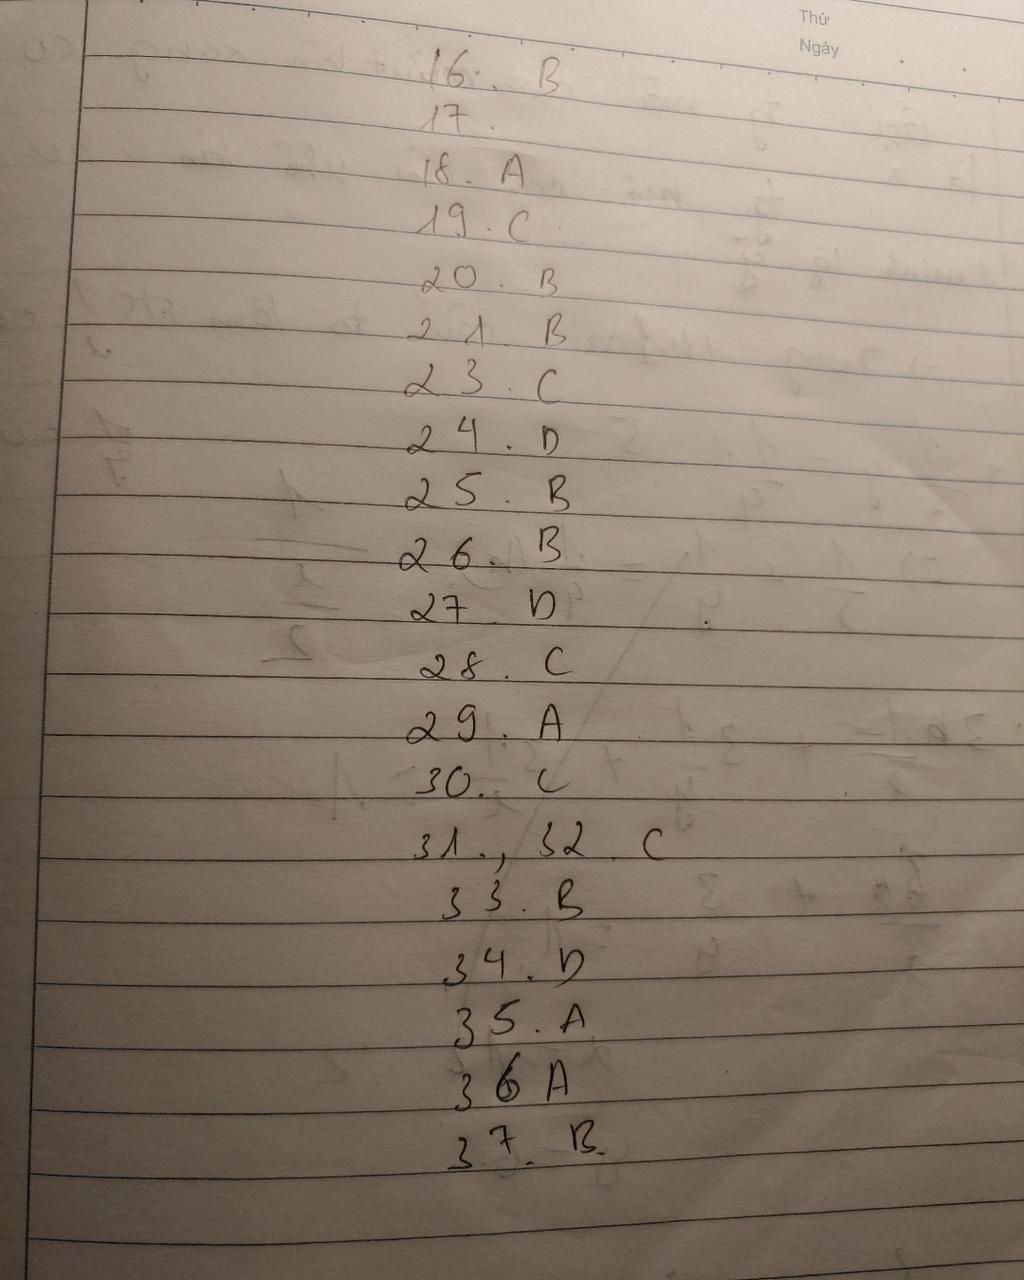 Thứ
Ngày
16. B
17.
18. A
19. C
20. B
21. B
23. C
24. D
25. B
26. B
27 D
28. C
29. A
30. C
31., 32. C
33. B
34. D
35. A
36 A
37. B